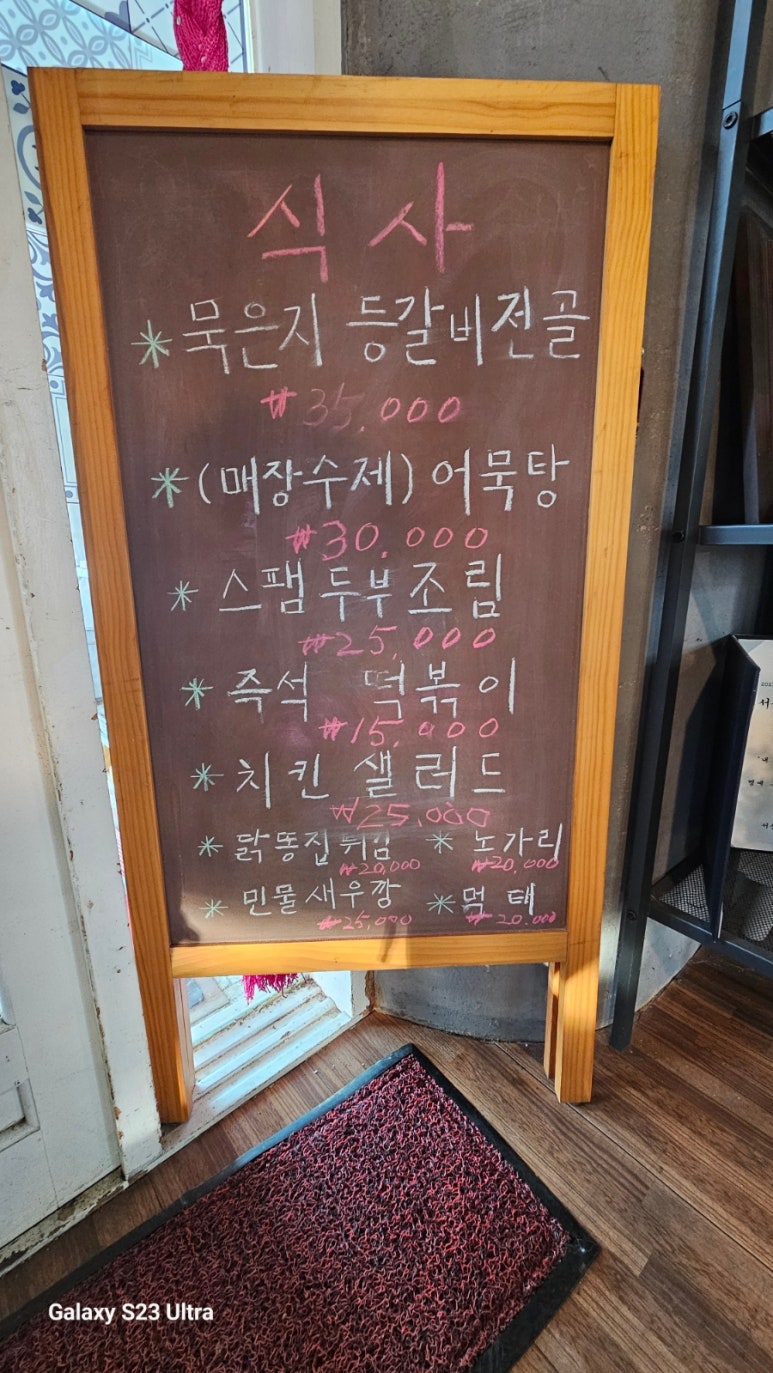 식사
* 묵은지 등갈비전골
₩35.000
* (매장수제) 어묵탕
₩30.000
* 스팸두부조림
₩25.000
* 즉석 떡볶이
₩15.000
* 치킨 샐러드
₩25.000
* 닭똥집튀김 * 노가리
₩20,000 ₩20.000
* 민물새우깡 * 먹태
₩25,000 ₩20.000
Galaxy S23 Ultra